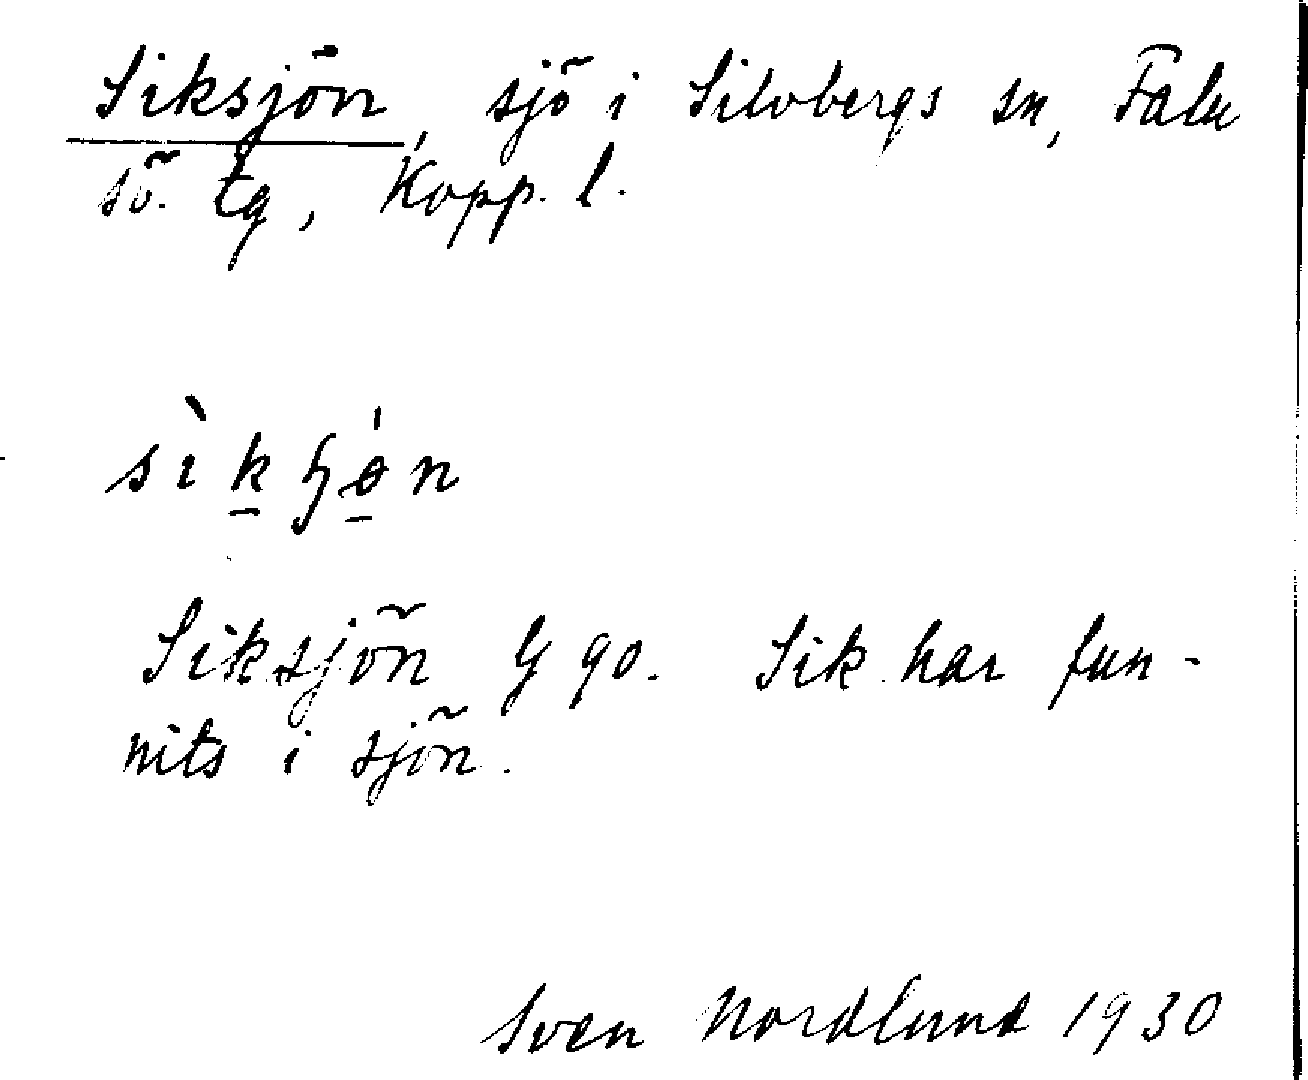 Siksjön, sjö i Silvbergs sn, Falu
sö. tg, Kopp. l.
sìkɧǿ̲n
Siksjön G 90. Sik har fun-
nits i sjön.
Sven Nordlund 1930